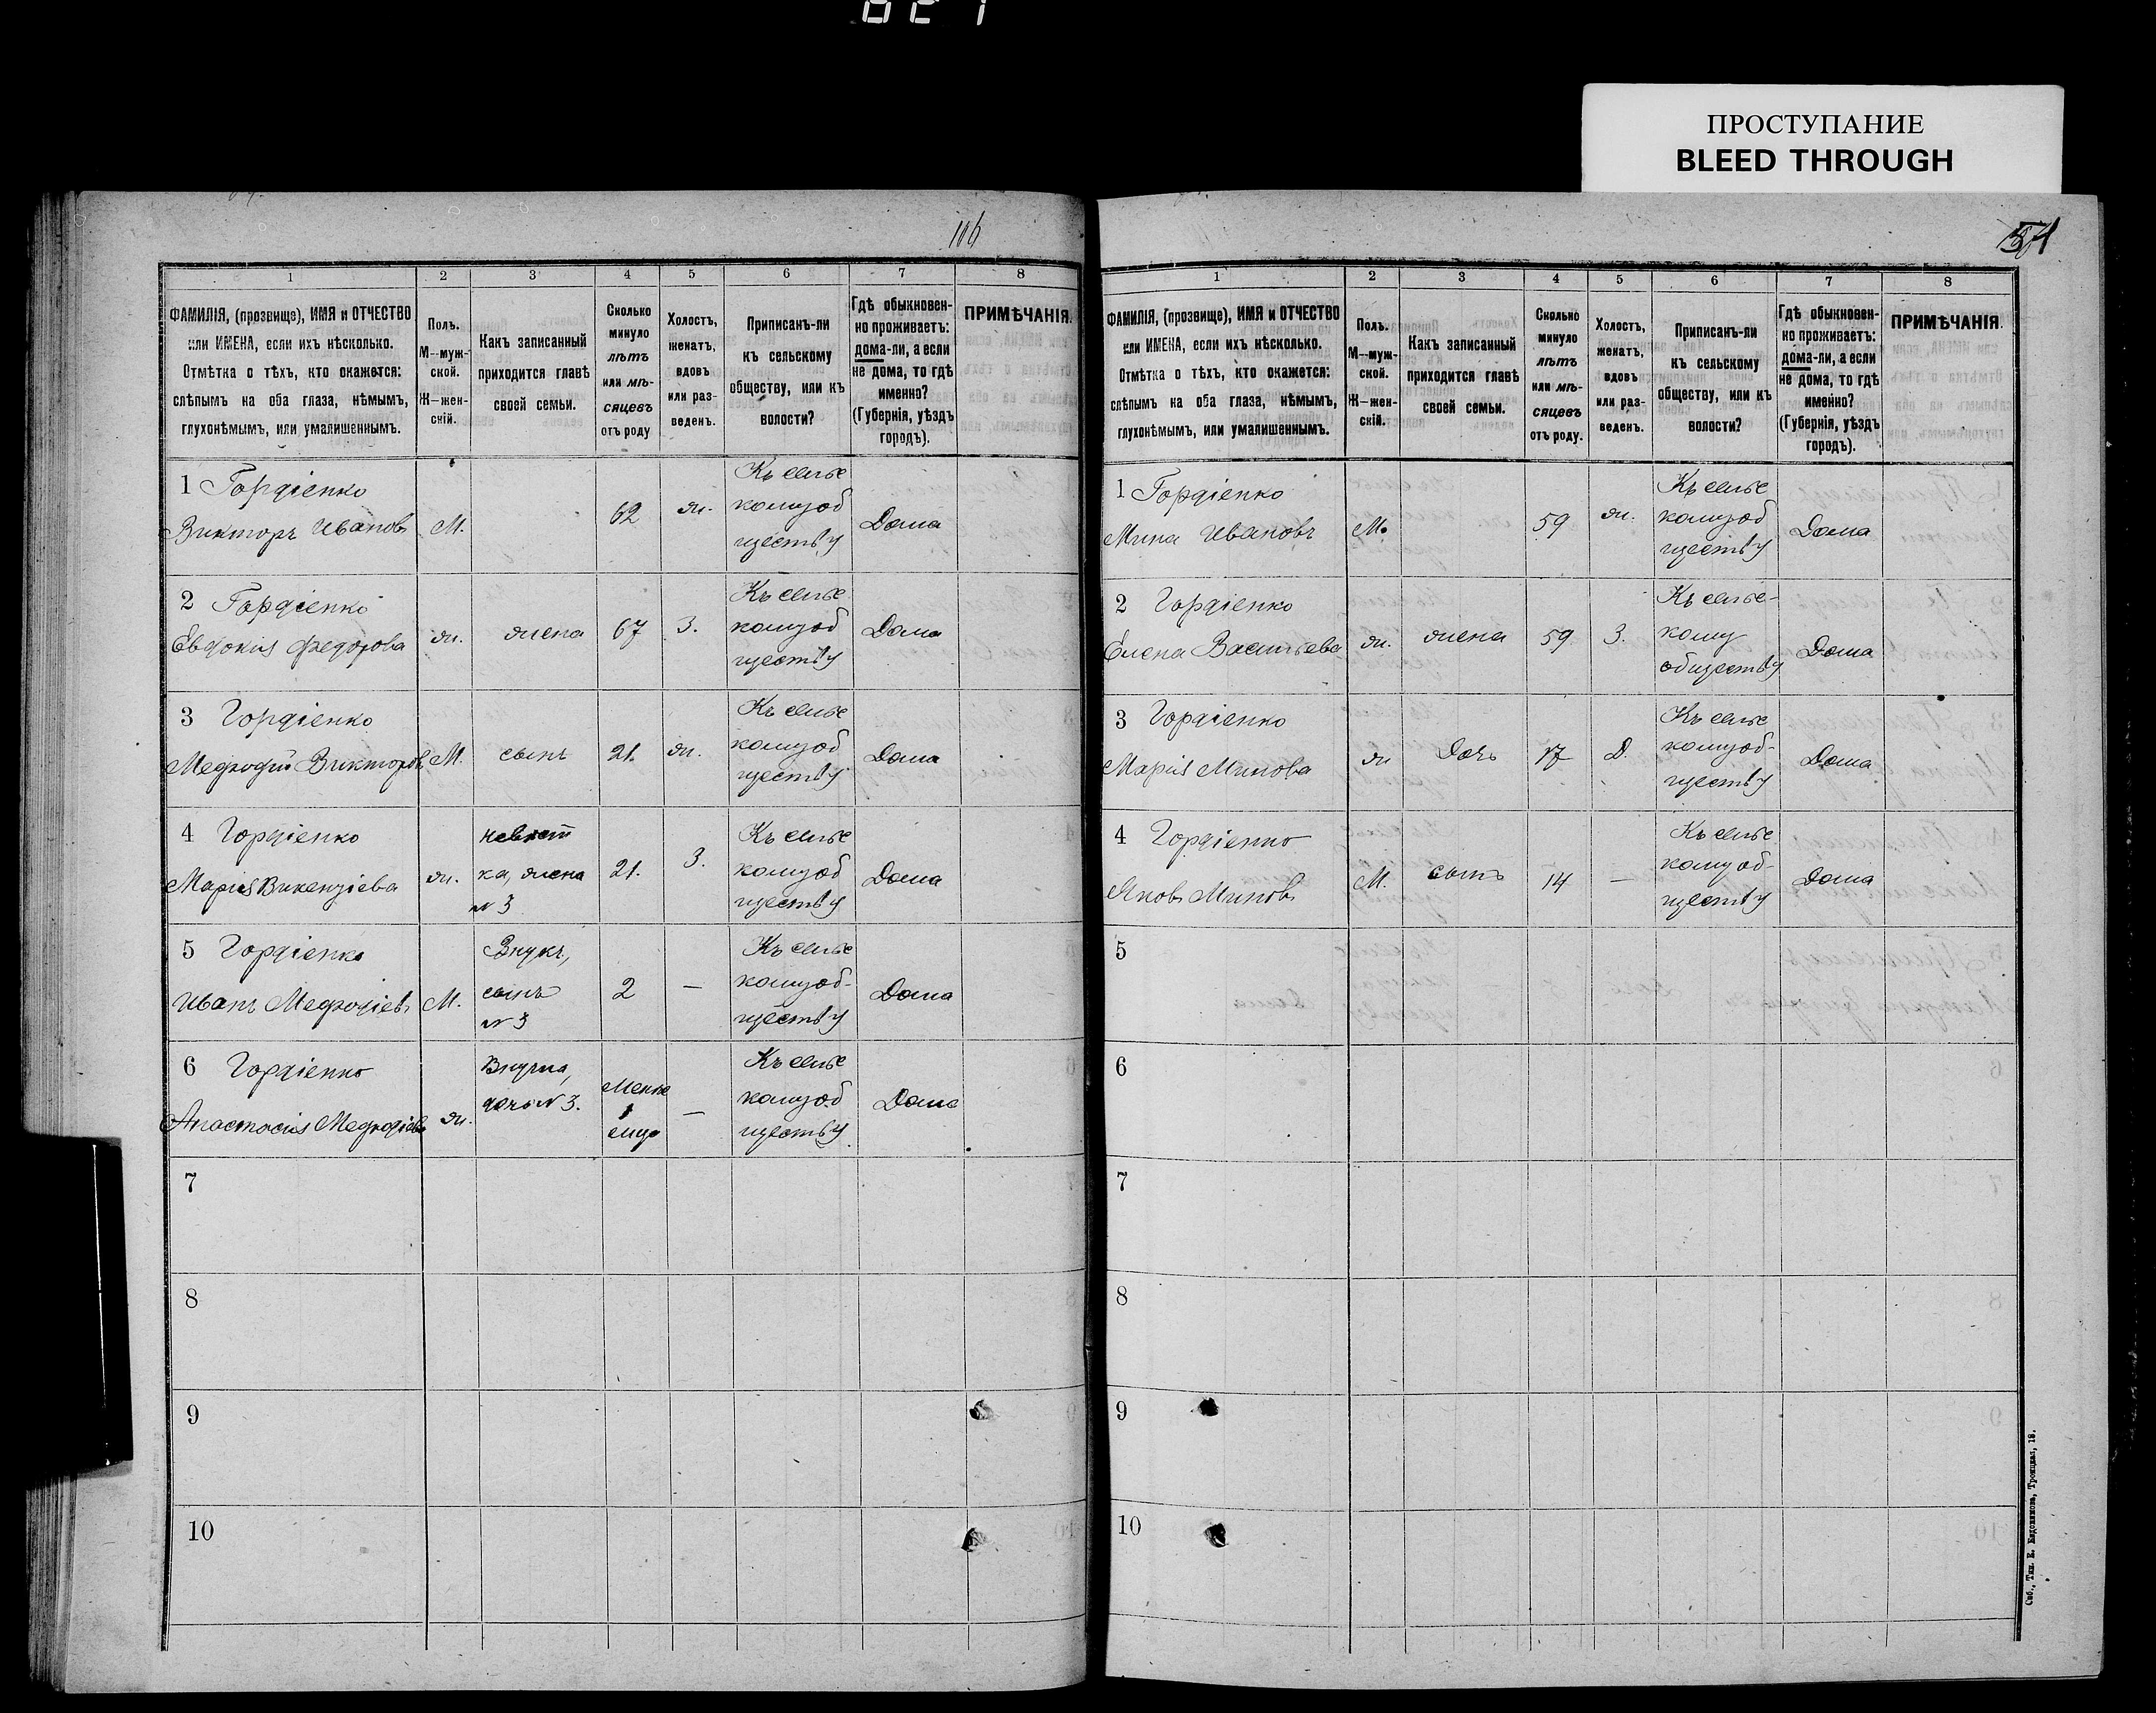 ПРОСТУПАНИЕ
BLEED THROUGH
106
1 2 3 4 5 6 7 8
ФАМИЛІЯ, (прозвище), ИМЯ и ОТЧЕСТВО
или ИМЕНА, если ихъ нѣсколько.
Отмѣтка о тѣхъ, кто окажется:
слѣпымъ на оба глаза, нѣмымъ,
глухонѣмымъ, или умалишеннымъ.
Полъ.
М—муж-
ской.
Ж—жен-
скій.
Какъ записанный
приходится главѣ
своей семьи.
Сколько
минуло
лѣтъ
или мѣ-
сяцевъ
отъ роду
Холостъ,
женатъ,
вдовъ
или раз-
веденъ.
Приписанъ-ли
къ сельскому
обществу, или къ
волости?
Гдѣ обыкновен-
но проживаетъ:
дома-ли, а если
не дома, то гдѣ
именно?
(Губернія, уѣздъ
городъ).
ПРИМѢЧАНІЯ.
1 Гордіенко
Викторъ Ивановъ
М.
62
ж.
Къ сельс
комуоб
ществу
Дома
2 Гордіенко
Евдокія Федорова
ж.
жена
67
З.
Къ сельс
комуоб
ществу
Дома
3 Гордіенко
Мефодій Викторовъ
М.
сынъ
21.
ж.
Къ сельс
комуоб
ществу
Дома
4 Гордіенко
Марія Викентіева
ж.
невѣст
ка, жена
№ 3
21.
З.
Къ сельс
комуоб
ществу
Дома
5 Гордіенко
Иванъ Мефодіевъ
М.
Внукъ,
сынъ
№ 3
2
—
Къ сельс
комуоб-
ществу
Дома
6 Гордіенко
Анастасія Мефодіева
ж.
Внучка,
дочь № 3.
Менѣе
1
—
Къ сельс
комуоб
ществу
Дома
7
8
9
10
1 2 3 4 5 6 7 8
ФАМИЛІЯ, (прозвище), ИМЯ и ОТЧЕСТВО
или ИМЕНА, если ихъ нѣсколько.
Отмѣтка о тѣхъ, кто окажется:
слѣпымъ на оба глаза, нѣмымъ,
глухонѣмымъ, или умалишеннымъ.
Полъ.
М—муж-
ской.
Ж—жен-
скій.
Какъ записанный
приходится главѣ
своей семьи.
Сколько
минуло
лѣтъ
или мѣ-
сяцевъ
отъ роду.
Холостъ,
женатъ,
вдовъ
или раз-
веденъ.
Приписанъ-ли
къ сельскому
обществу, или къ
волости?
Гдѣ обыкновен-
но проживаетъ:
дома-ли, а если
не дома, то гдѣ
именно?
(Губернія, уѣздъ
городъ).
ПРИМѢЧАНІЯ.
1 Гордіенко
Мина Ивановъ
М.
59
ж.
Къ сельс
комуоб
ществу
Дома
2 Гордіенко
Елена Васильева
ж.
жена
59
З.
Къ сельс-
кому
обществу
Дома
3 Гордіенко
Марія Минова
ж
Дочь
17
Д.
Къ сельс
комуоб-
ществу
Дома
4 Гордіенко
Яковъ Миновъ
М.
сынъ
14
—
Къ сельс
комуоб-
ществу
Дома
5
6
7
8
9
10
Спб., Тип. Е. Евдокимова, Троицкая, 18.